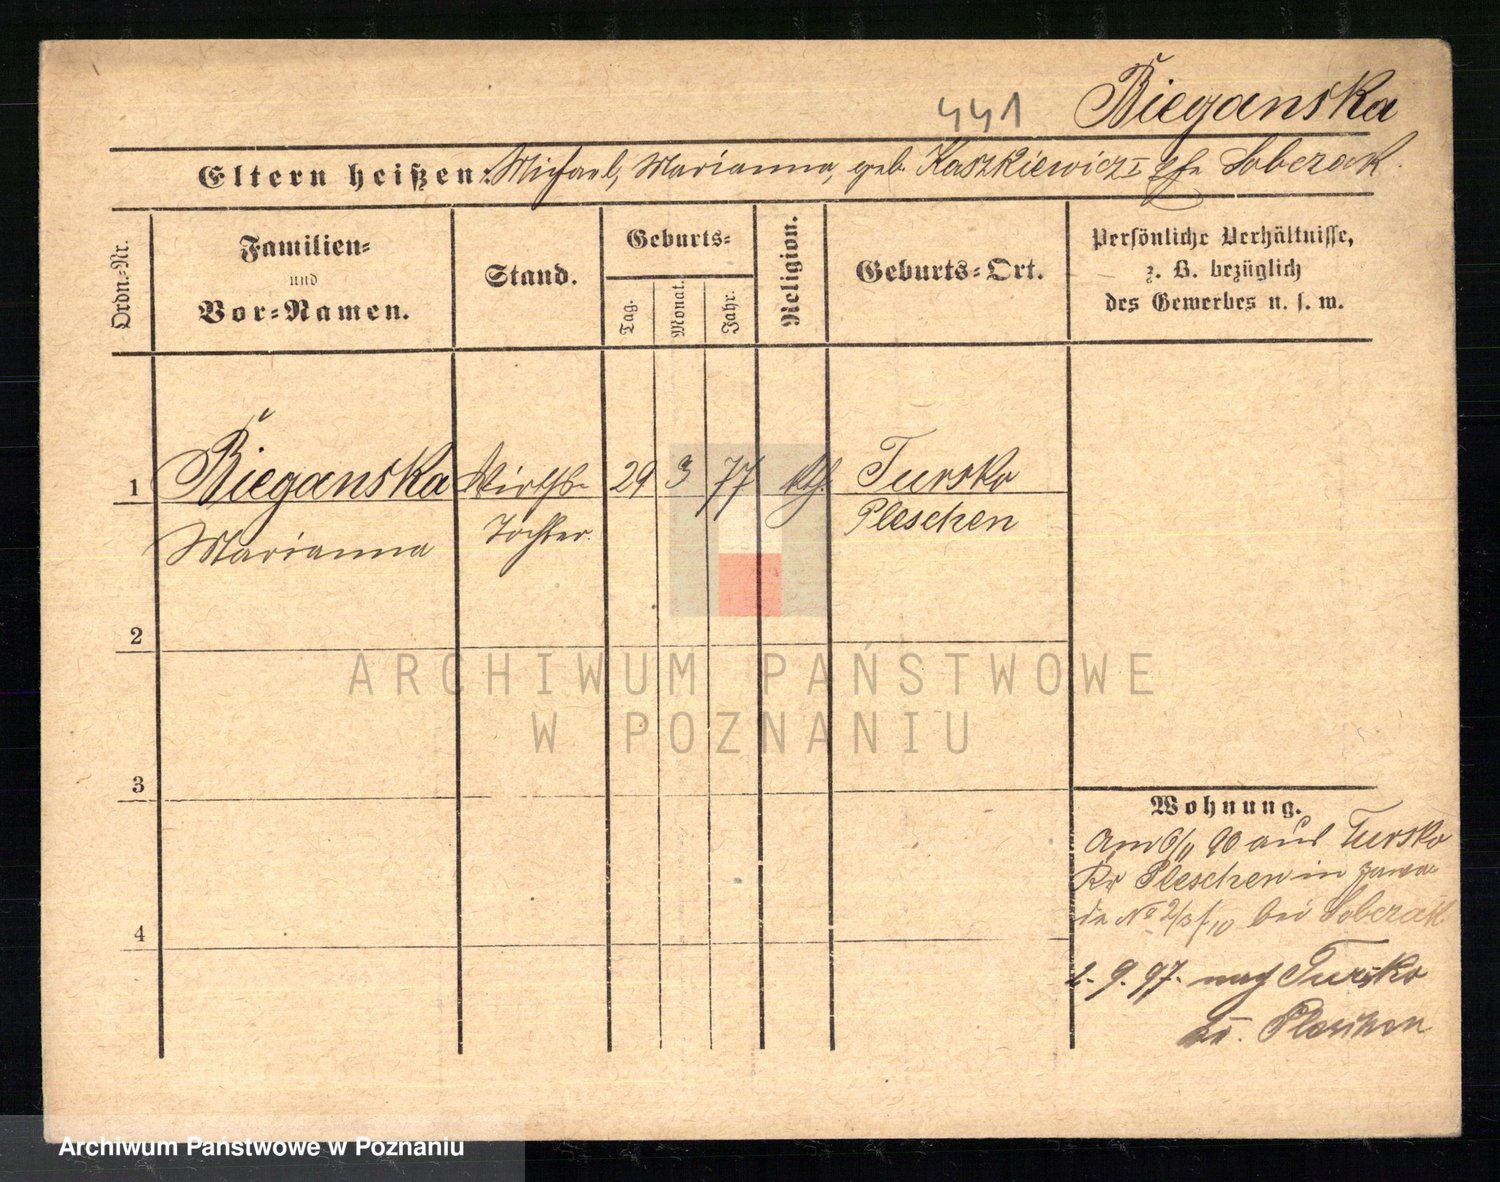 441 Bieganska
Eltern heißen: Michael, Marianna, geb. Kaszkiewicz I Ehe Sobczak.
Ordn.-Nr.
Familien-
und
Vor-Namen.
Stand.
Geburts-
Tag.
Monat.
Jahr.
Religion.
Geburts-Ort.
Persönliche Verhältnisse,
z. B. bezüglich
des Gewerbes u. s. w.
1 Bieganska Wirths- 29 3 77 kth. Tursko
Marianna Tochter. Pleschen
2
3
4
Wohnung.
Am 6/11 90 aus Tursko
Kr Pleschen in Zawa
de No bei Sobczak
2. 9. 97. nach Tursko
Kr. Pleschen
ARCHIWUM PAŃSTWOWE
W POZNANIU
Archiwum Państwowe w Poznaniu